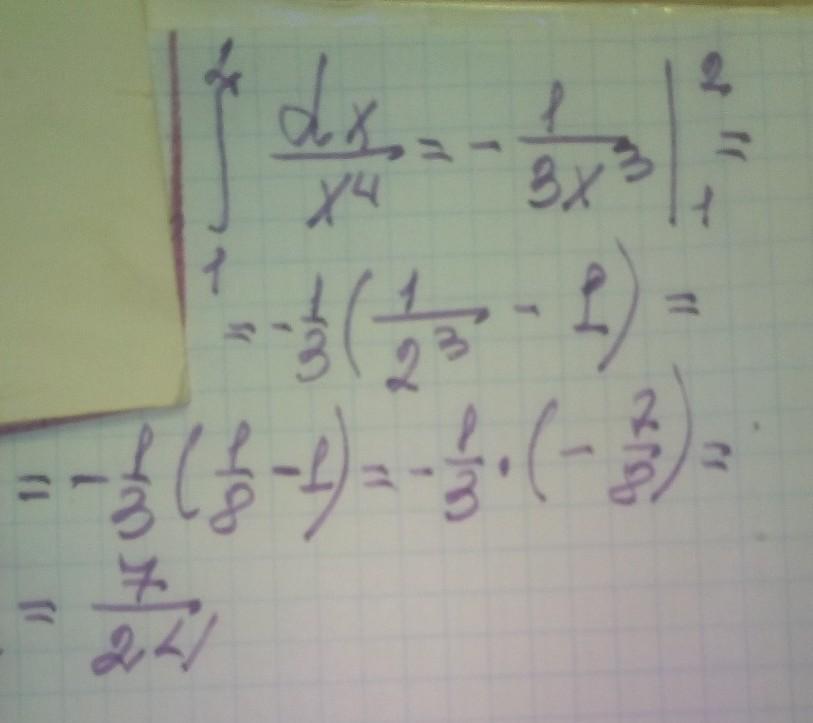 ∫₁² dx/x⁴ = - 1/3x³ |₁² =
= - 1/3 ( 1/2³ - 1 ) =
= - 1/3 ( 1/8 - 1 ) = - 1/3 · ( - 7/8 ) =
= 7/24